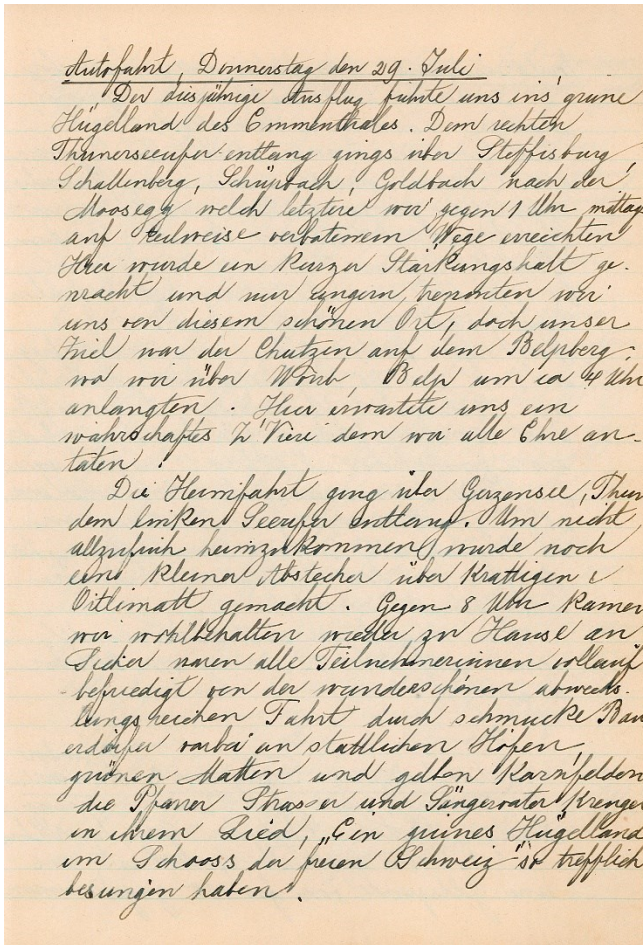 Autofahrt, Donnerstag den 29. Juli
Der diesjährige Ausflug führte uns ins grüne
Hügelland des Emmenthales. Dem rechten
Thunerseeufer entlang gings über Steffisburg,
Schallenberg, Schüpbach, Goldbach nach der
Moosegg welch letztere wir gegen 1 Uhr mittag
auf teilweise verbotenem Wege erreichten
Hier wurde ein kurzer Stärkungshalt ge-
macht und nur ungern trennten wir
uns von diesem schönen Ort, doch unser
Ziel war der Chutzen auf dem Belpberg,
wo wir über Worb, Belp um ca 4 Uhr
anlangten. Hier erwartete uns ein
währschaftes Z'Vieri dem wir alle Ehre an-
taten.
Die Heimfahrt ging über Gerzensee, Thun
dem linken Seeufer entlang. Um nicht
allzufrüh heimzukommen wurde noch
ein kleiner Abstecher über Krattigen
gemacht. Gegen 8 Uhr kamen
wir wohlbehalten wieder zu Hause an
Sicher waren alle Teilnehmerinnen vollauf
befriedigt von der wunderschönen abwechs-
lungsreichen Fahrt durch schmucke Bau
erdörfer vorbei an stattlichen Höfen,
grünen Matten und gelben Kornfeldern
die Pfarrer Strasser und Sängervater Krenger
in ihrem Lied, „Ein grünes Hügelland
im Schooss der freien Schweiz" so trefflich
besungen haben.